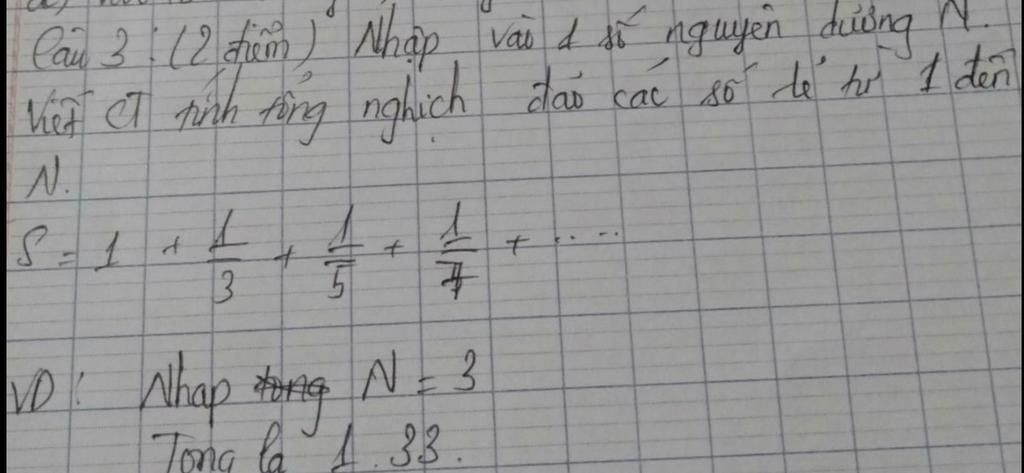 Câu 3 : (2 điểm) Nhập vào 1 số nguyên dương N.
Viết CT tính tổng nghịch đảo các số lẻ từ 1 đến
N.
S = 1 + 1/3 + 1/5 + 1/7 + .....
VD : Nhap tong N = 3
Tong la 1.33.